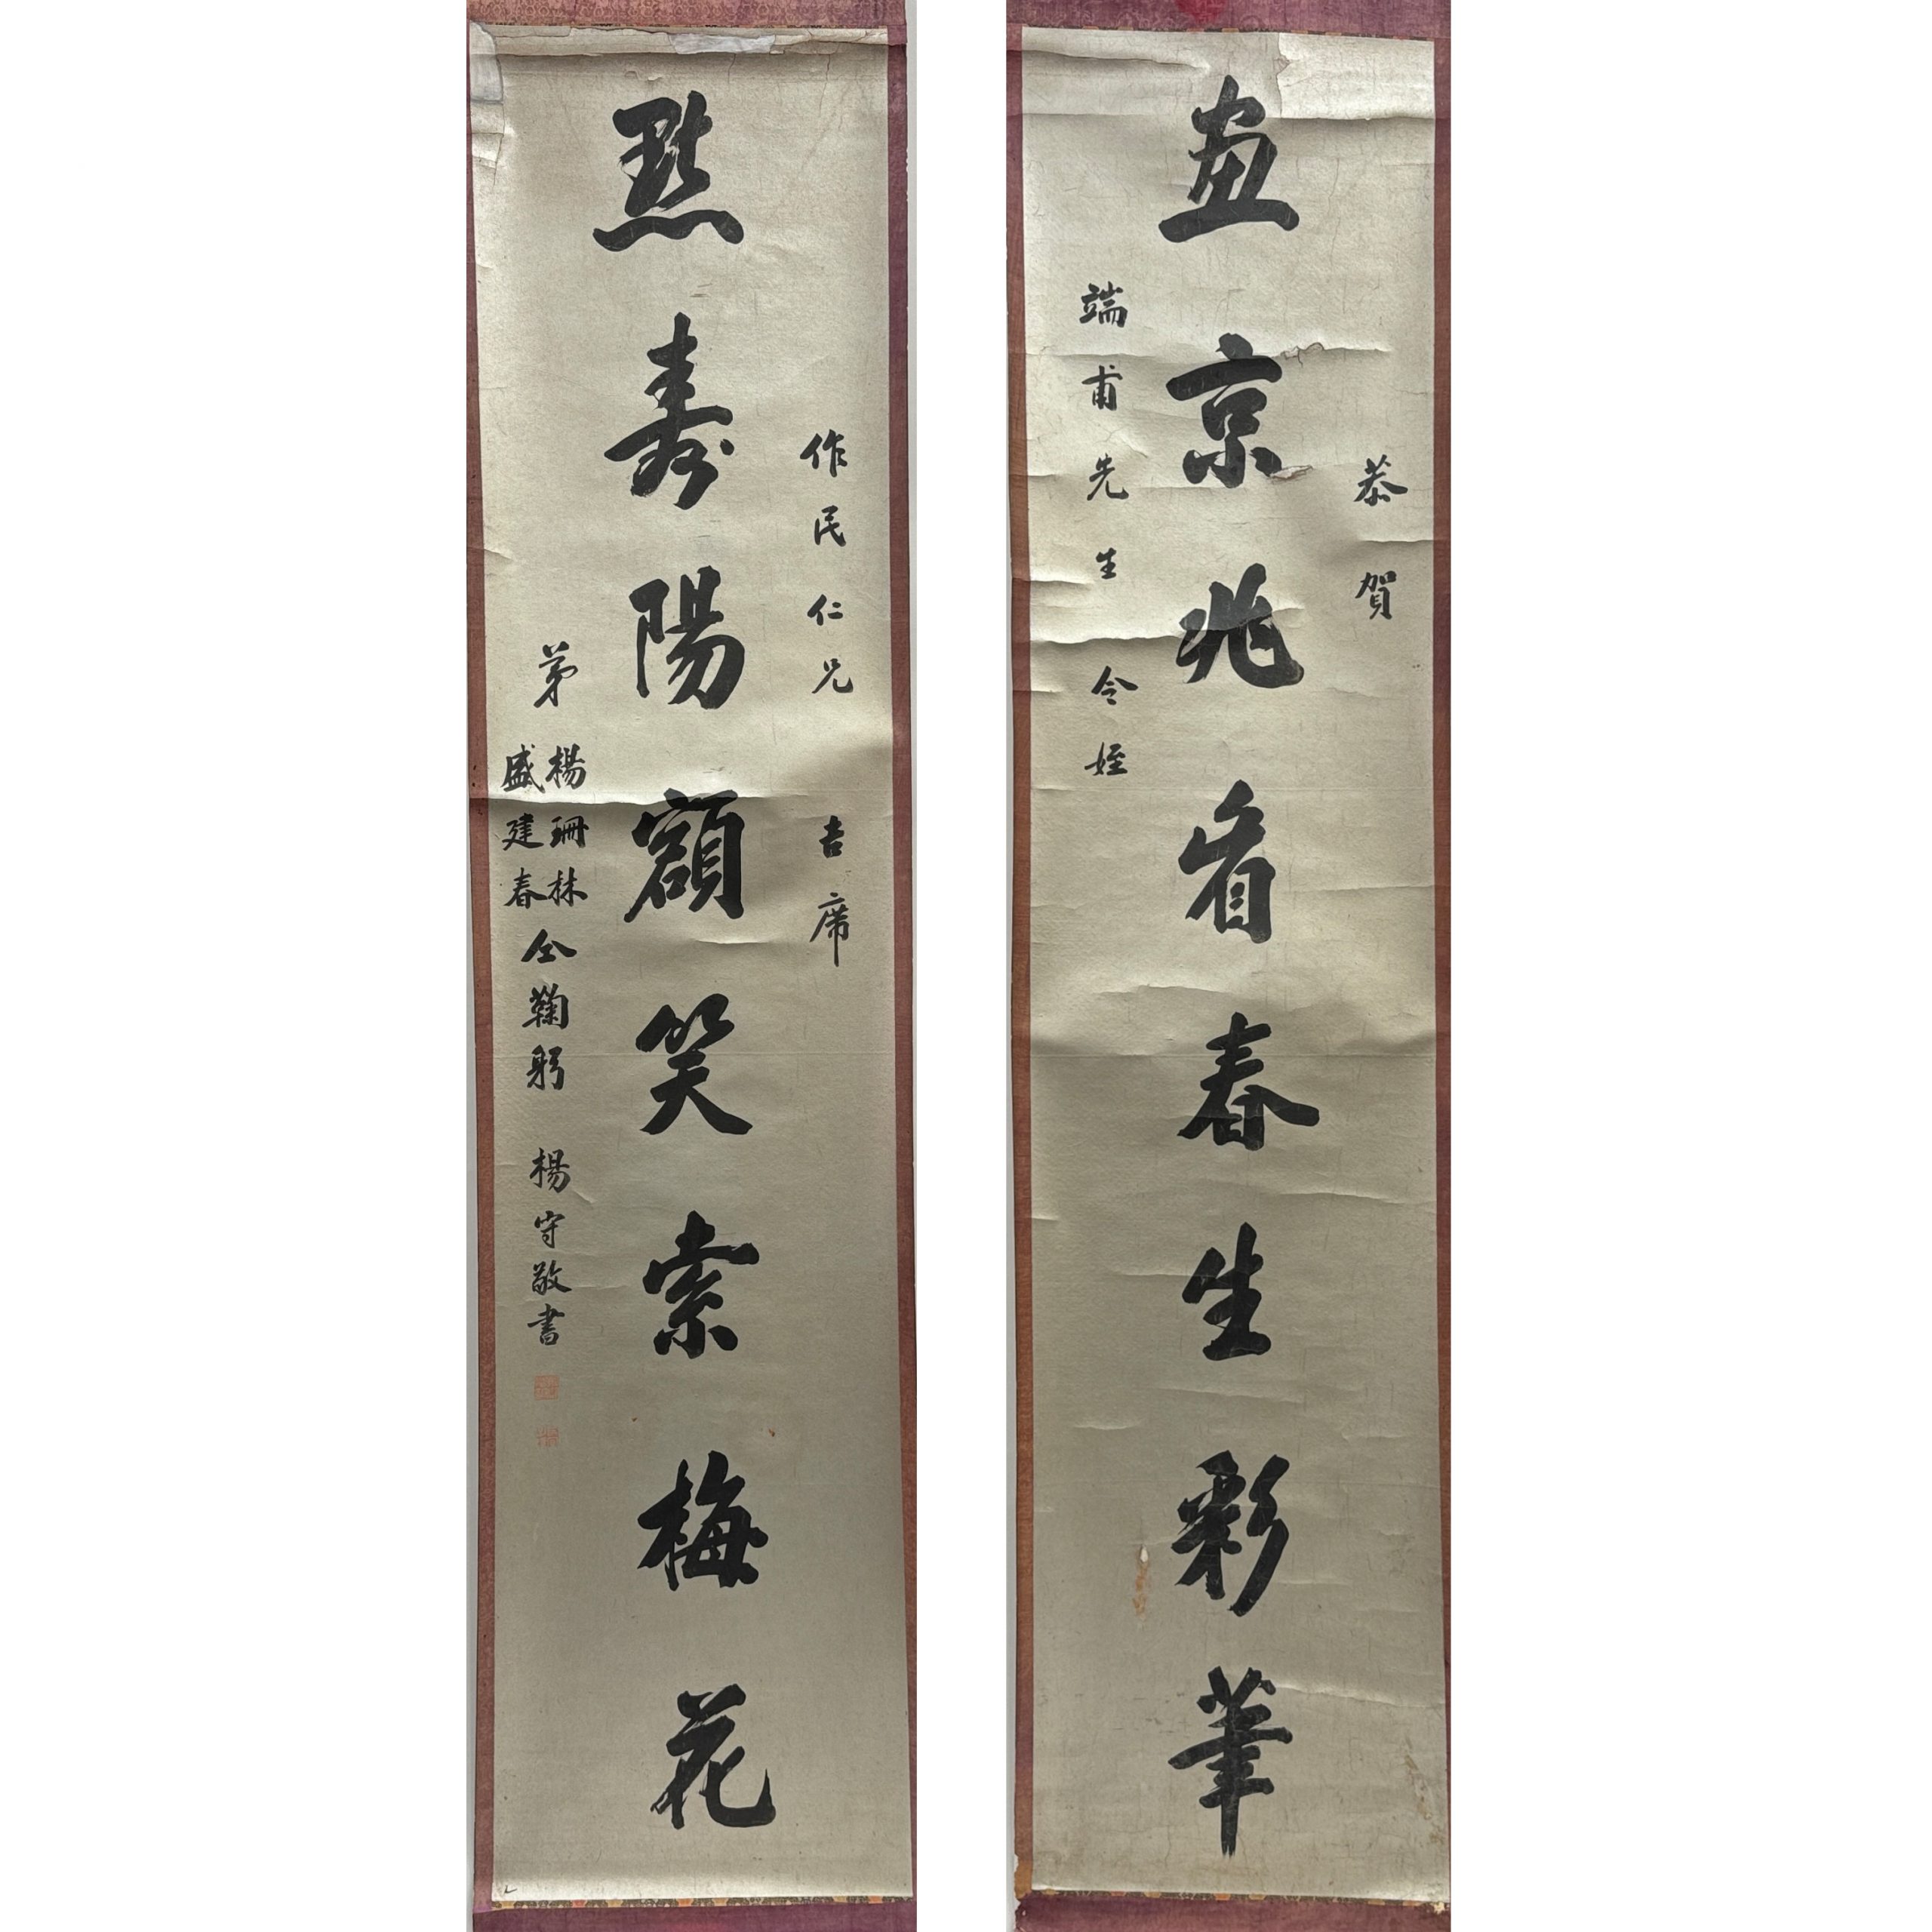 恭賀
畫京兆眉春生彩筆
端甫先生令姪
作民仁兄吉席
點壽陽額笑索梅花
弟楊珊林盛建春仝鞠躬
楊守敬書